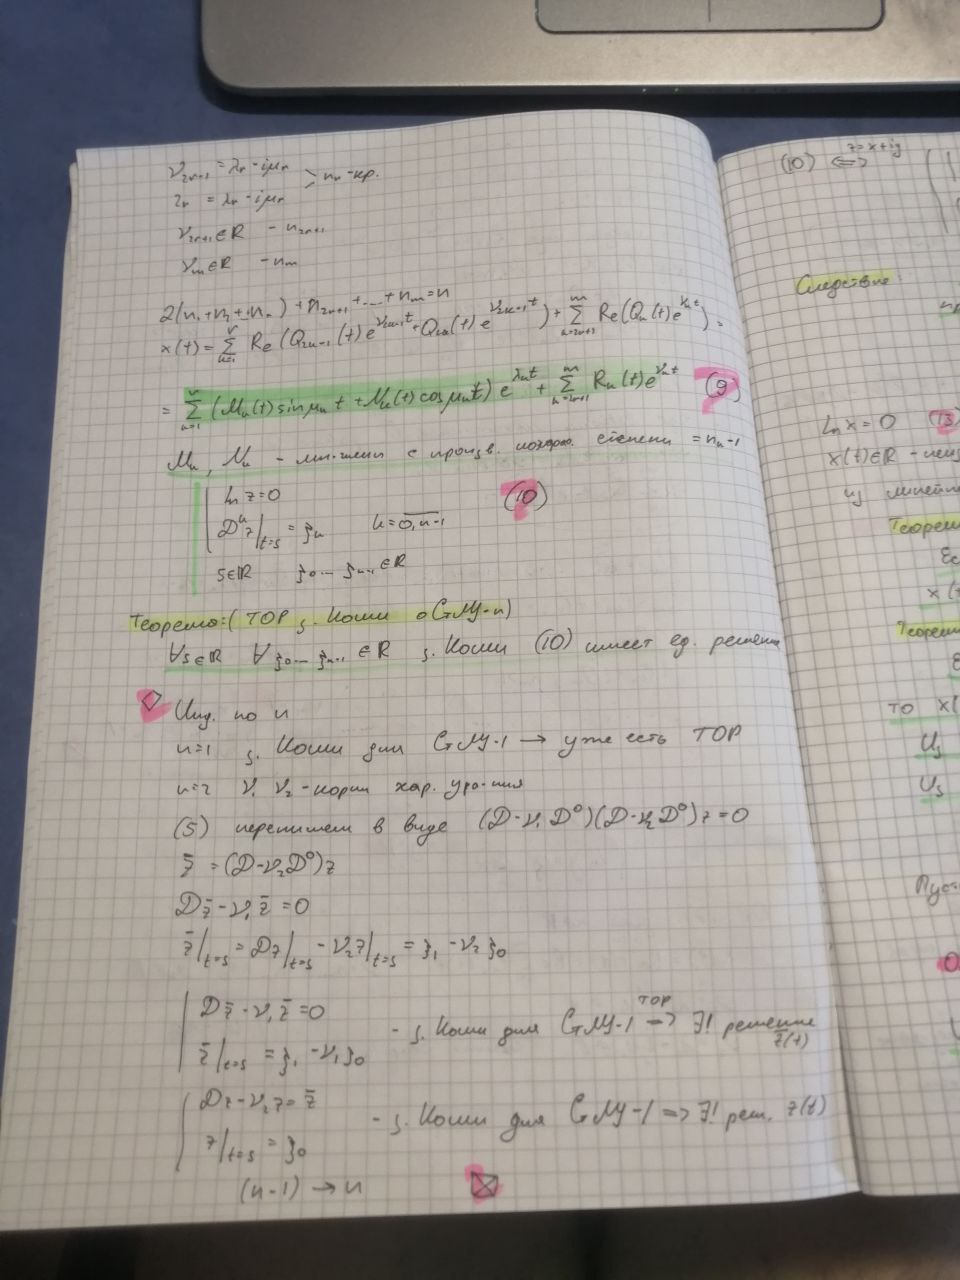 ν₂ᵣ₊₁ = λᵣ - iμᵣ
₂ᵣ = λᵣ - iμᵣ > nᵣ - кр.
ν₂ᵣ₊₁ ∈ ℝ - n₂ᵣ₊₁
νₘ ∈ ℝ - nₘ
2(n₁+n₂+nᵣ) + n₂ᵣ₊₁ + ... + nₘ = n
x(t) = Σ Re(Q₂ₖ₋₁(t)e^{ν₂ₖ₋₁t} + Q₂ₖ(t)e^{ν₂ₖ₋₁t}) + Σ Re(Qₖ(t)e^{νₖt}) =
= Σ (Mₖ(t) sin μₖt + Nₖ(t) cos μₖt) e^{λₖt} + Σ Rₖ(t)e^{νₖt} (9)
Mₖ, Nₖ - мн-члени с произв. степени = nₖ-1
Lₙ z = 0 (10)
Dᵏz|ₜ₌ₛ = ξₖ k = 0, n-1
s∈ℝ ξ₀ ... ξₙ₋₁ ∈ ℝ
Теорема: (ТОР з. Коши оСтЛУ-n)
∀s∈ℝ ∀ξ₀ ... ξₙ₋₁ ∈ ℝ з. Коши (10) имеет ед. решение
◇ Инд. по n
n=1 з. Коши для СтЛУ-1 → уже есть ТОР
n=2 ν₁ ν₂ - корни хар. ур-ния
(5) перепишем в виде (D-ν₁D⁰)(D-ν₂D⁰)z = 0
z̄ = (D-ν₂D⁰)z
Dz̄ - ν₁z̄ = 0
z̄|ₜ₌ₛ = Dz|ₜ₌ₛ - ν₂z|ₜ₌ₛ = ξ₁ - ν₂ξ₀
Dz̄ - ν₁z̄ = 0
z̄|ₜ₌ₛ = ξ₁ - ν₁ξ₀ - з. Коши для СтЛУ-1 ⇒ (ТОР) ∃! решение z̄(t)
Dz - ν₂z = z̄
z|ₜ₌ₛ = ξ₀ - з. Коши для СтЛУ-1 ⇒ ∃! реш. z(t)
(n-1) → n ⊠
(10) ⇔ z=x+iy
Следствие:
Lₙx = 0 (13)
x(t)∈ℝ
из линейн
Теорем
Ес
x(
Теорем
то x(
U₁
Uₛ
Пуст